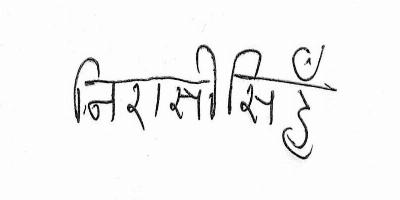 निरासीसिहँ